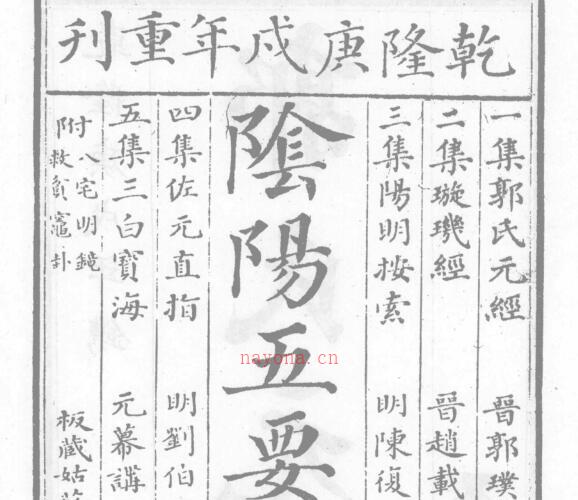 乾隆庚戌年重刊
一集郭氏元經 晉郭璞
二集璇璣經 晉趙載
三集陽明按索 明陳復
陰陽五要
四集佐元直指 明劉伯
五集三白寶海 元幕講
付八宅明鏡
附救貧竈卦
板藏姑
nayona.cn